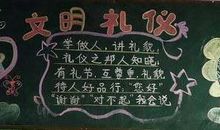 文明礼仪
学做人，讲礼貌，
礼仪之邦人知晓，
有礼节，互尊重，礼貌
待人好品行；“您好”
“谢谢”“对不起”我会说